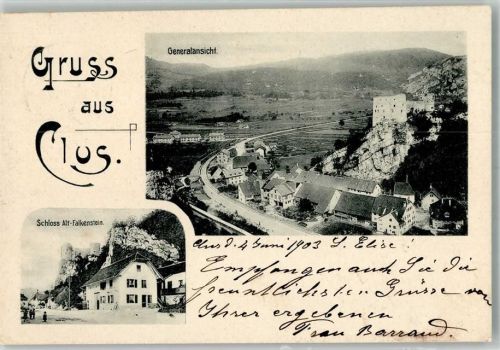 Generalansicht.
Gruss
aus
Clus.
Schloss Alt-Falkenstein.
Clus d. 4 Juni 1903 L. Elise!
Empfangen auch Sie die
freundlichsten Grüsse von
Ihrer ergebenen
Frau Barraud.